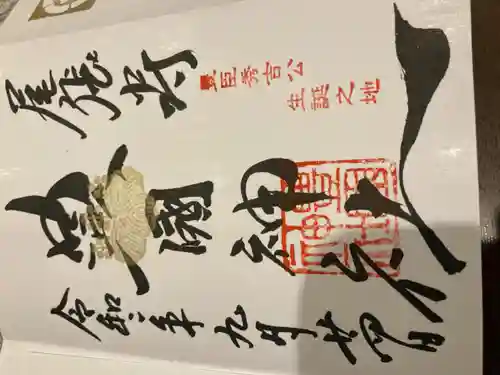 豊臣秀吉公
生誕之地
尾張
豊國神社
令和 年九月廿四日